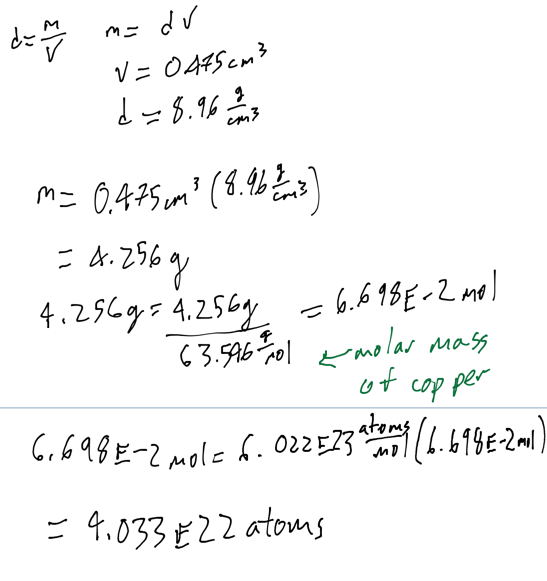 d = m/V m = dV
V = 0.475 cm³
d = 8.96 g/cm³
m = 0.475 cm³ (8.96 g/cm³)
= 4.256 g
4.256 g = 4.256 g / 63.546 g/mol = 6.698E-2 mol
← molar mass
of copper
6.698E-2 mol = 6.022E23 atoms/mol (6.698E-2 mol)
= 4.033E22 atoms